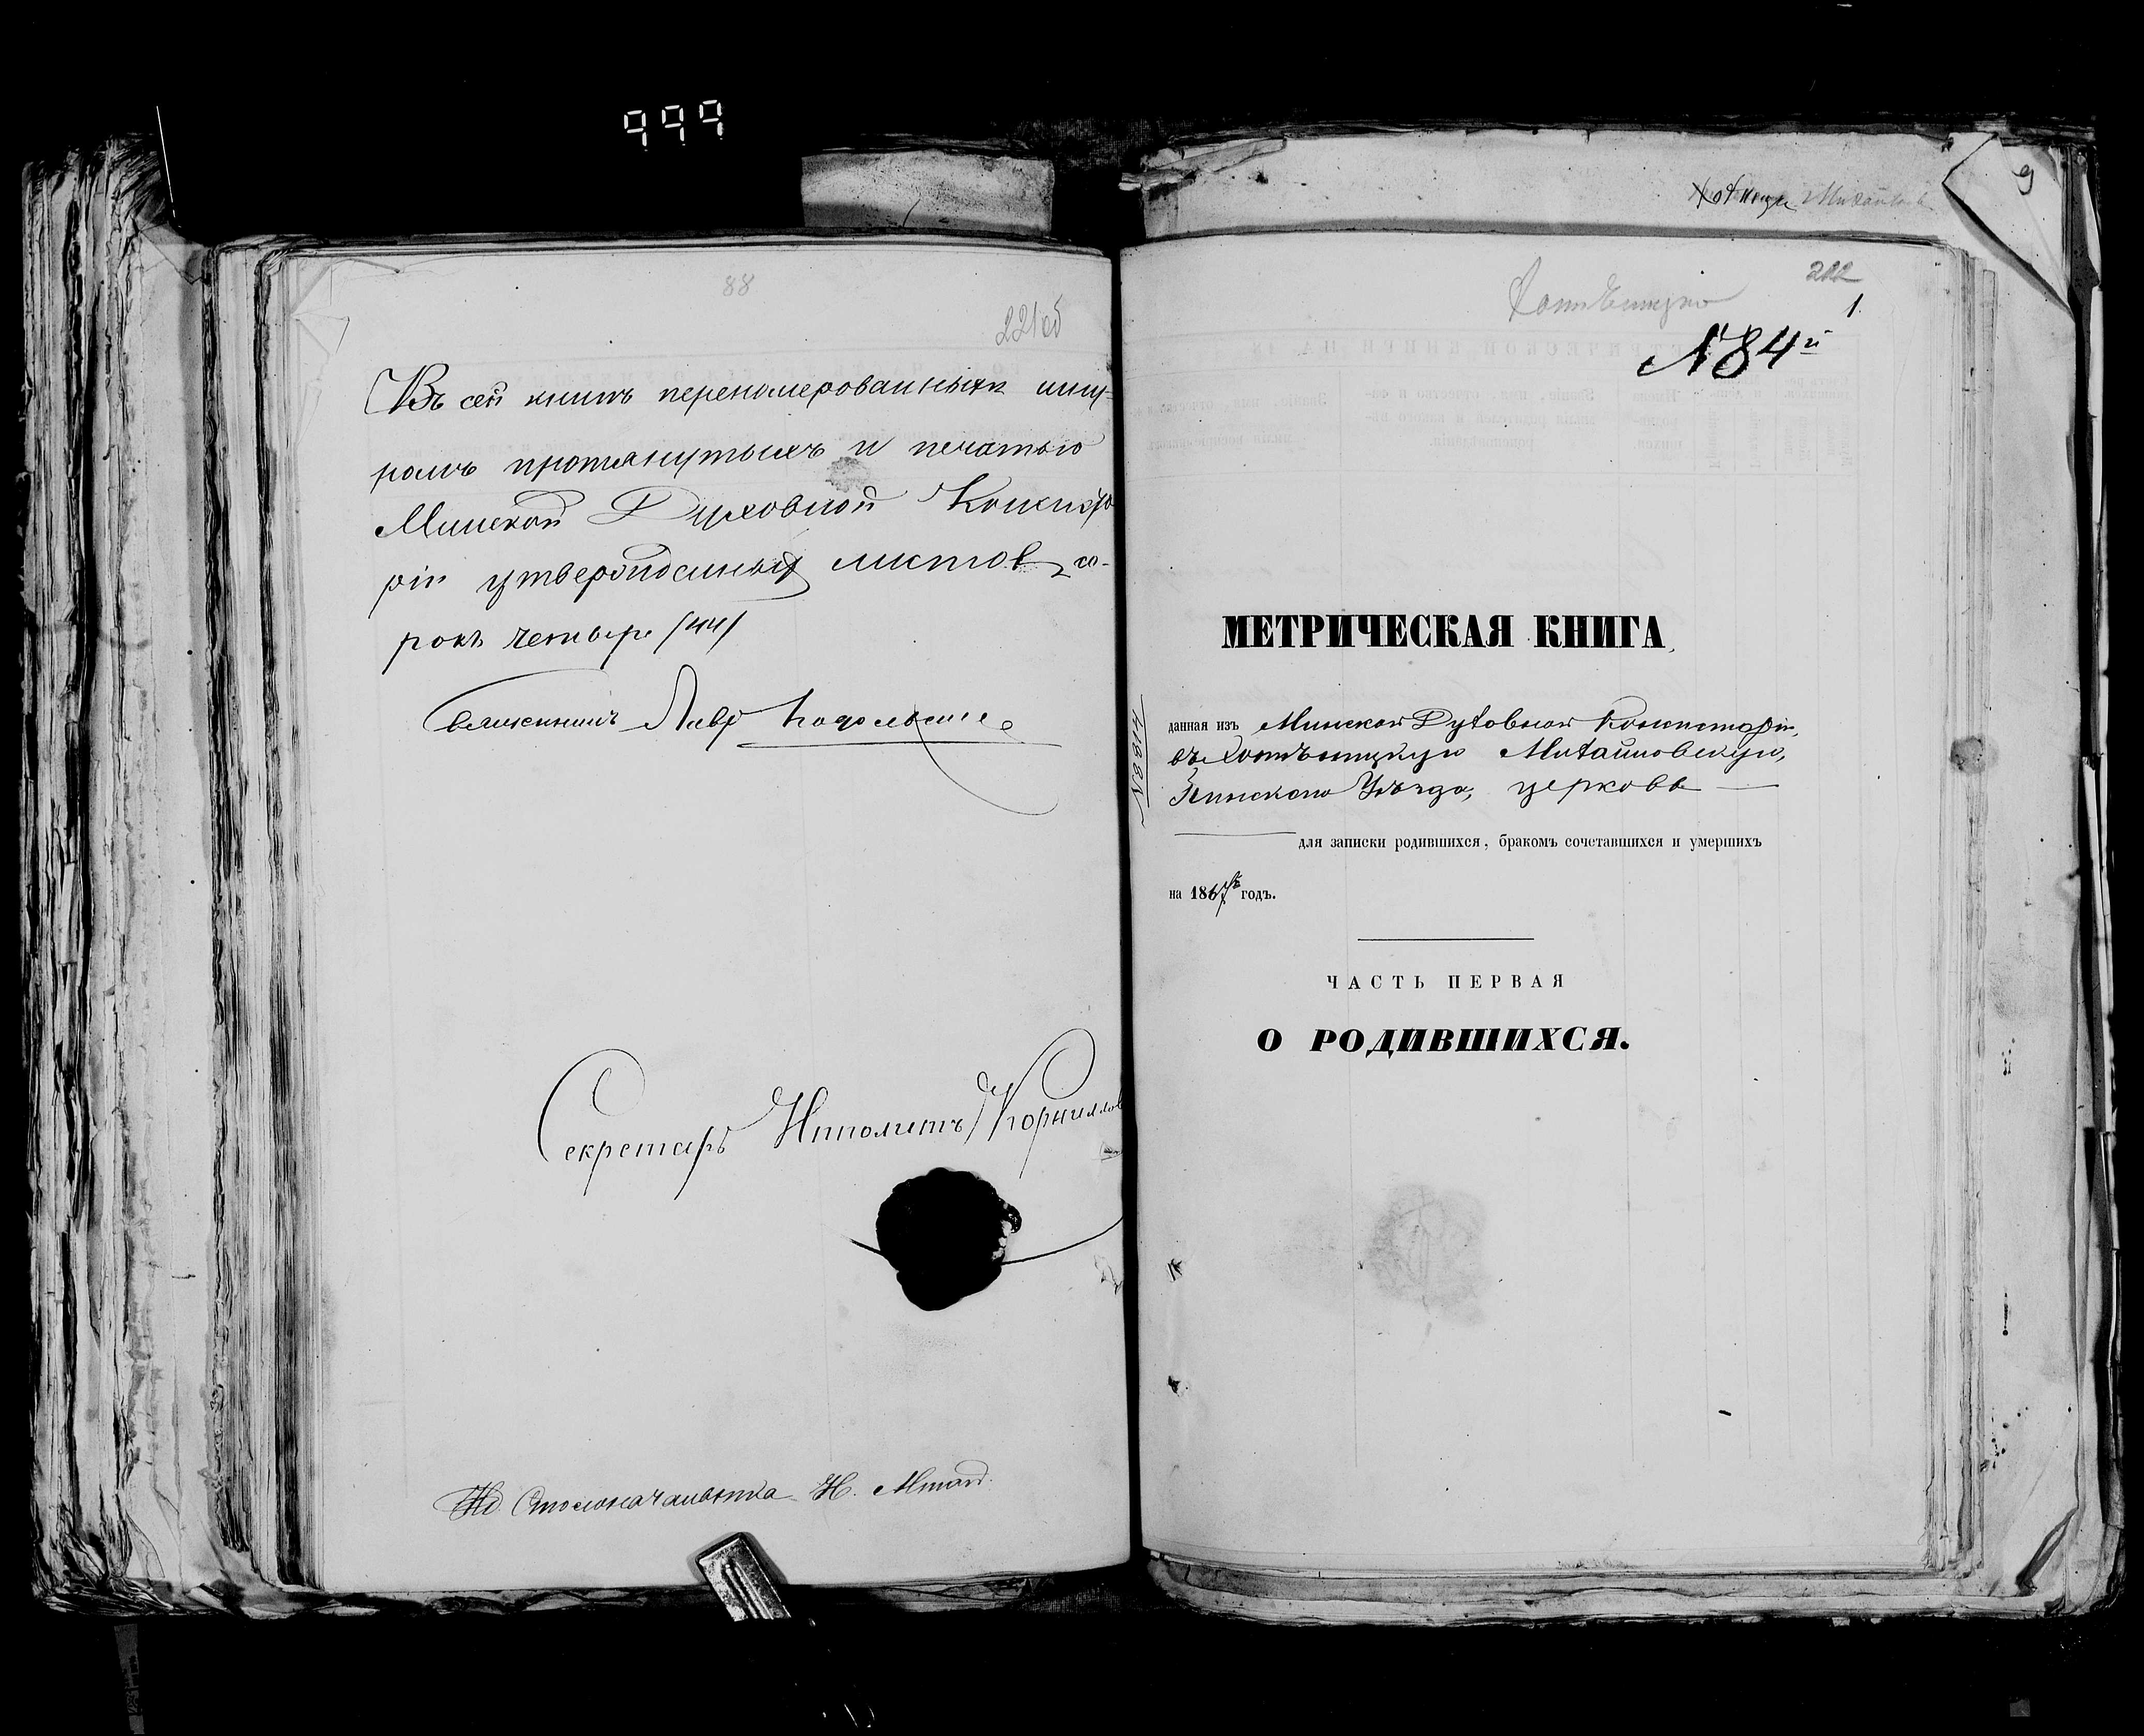 999
88
221об
Въ сей книгѣ перенумерованныхъ шну-
ромъ протянутыхъ и печатью
Минской Духовной Консисто
ріи утвержденныхъ листовъ со-
рокъ четыре /44/
Священникъ Лавр
Секретарь Ипполитъ Корниллов
Ид. Столоначальника Н.
9
Хотеницк Михайлов
Хотѣницко
222
1
№ 84й
МЕТРИЧЕСКАЯ КНИГА,
данная изъ Минской Духовной Консисторіи,
въ Хотѣницкую Михайловскую,
Пинского Уѣзда, церковь
для записки родившихся, бракомъ сочетавшихся и умершихъ
на 1867й годъ.
ЧАСТЬ ПЕРВАЯ
О РОДИВШИХСЯ.